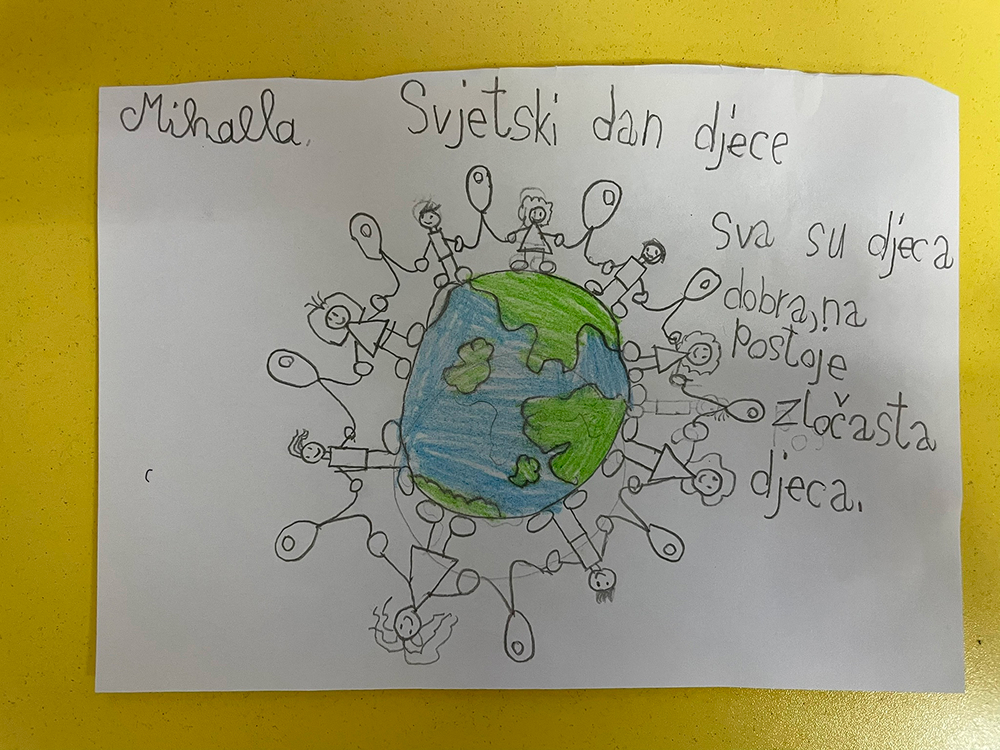 Mihaela.
Svjetski dan djece
Sva su djeca
dobra, na
postoje
zločasta
djeca.